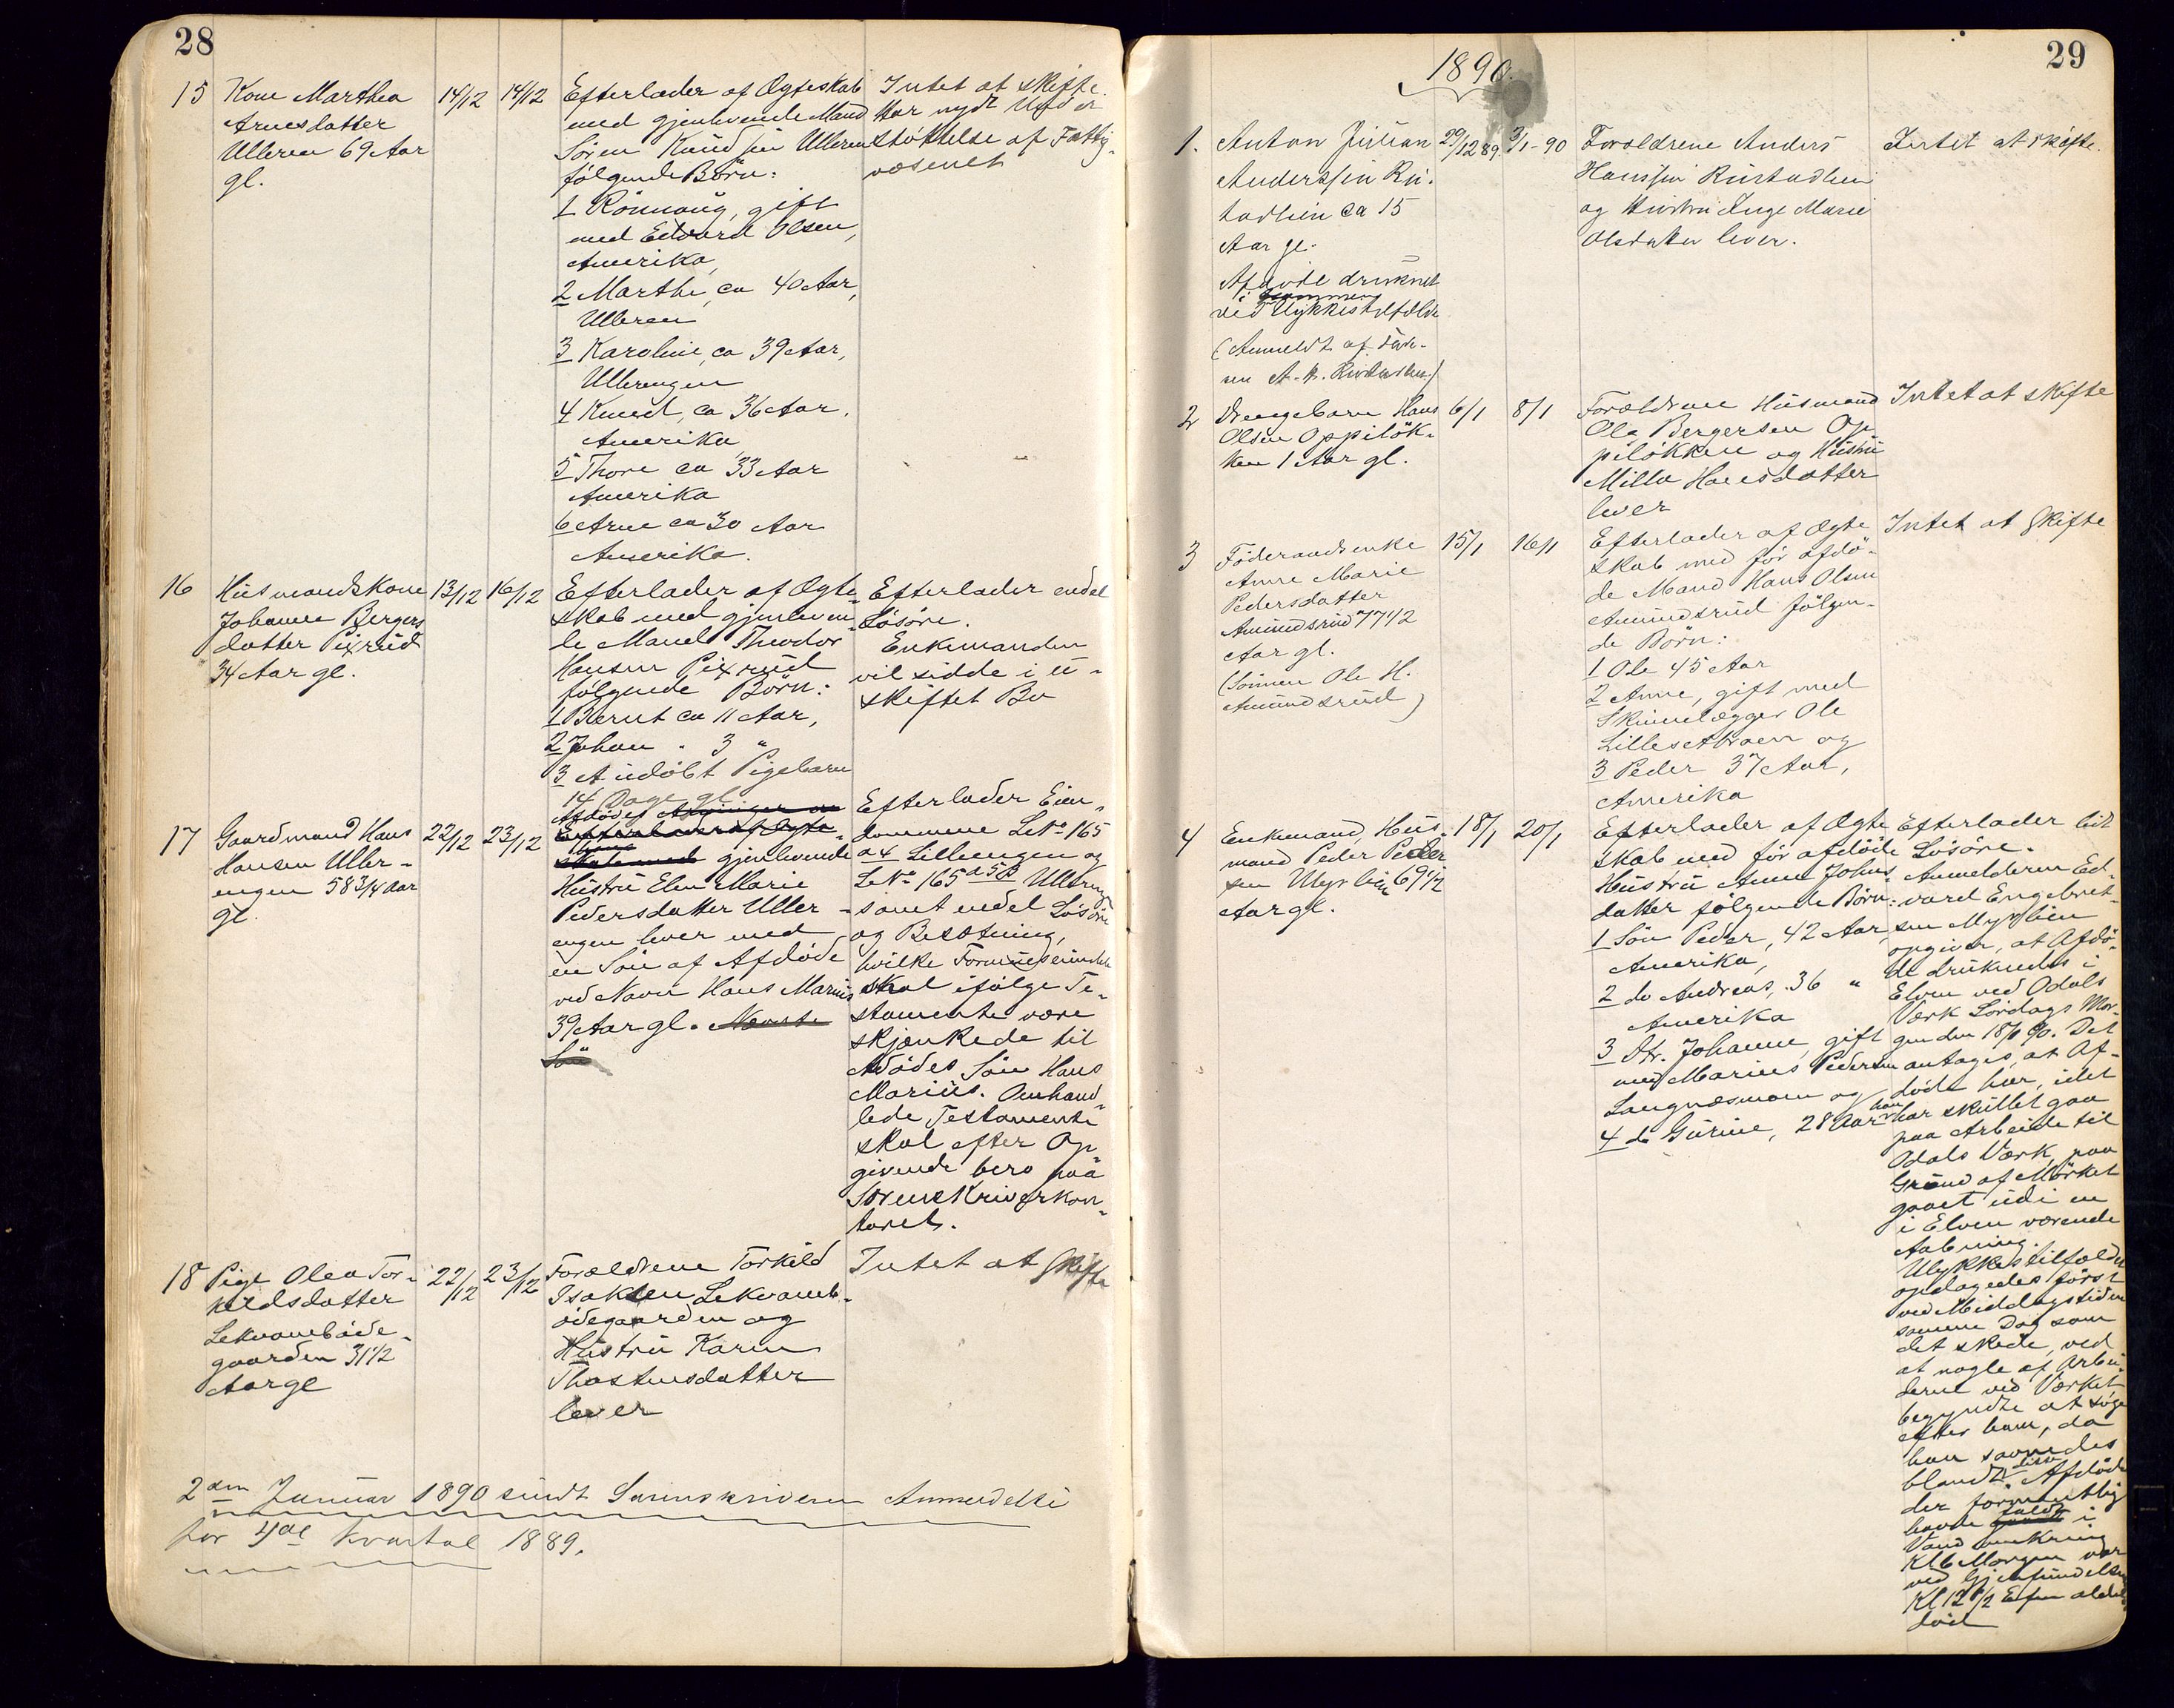 28
15 Kone Marthea
Arnesdatter
Ulleren 69 Aar
gl.
14/12
14/12
Efterlader af Ægteskab
med gjenlevende Mand
Sören Knudsen Ulleren
følgende Börn:
1 Rönnaug, gift
med Edvard Olsen,
Amerika,
2 Marthe, ca 40 Aar,
Ulleren
3 Karoline, ca 39 Aar,
Ullerengen
4 Knud, ca 36 Aar.
Amerika,
5 Thore ca 33 Aar
Amerika
6 Arne ca 30 Aar
Amerika.
Intet at skifte.
Har nydt Under
støttelse af Fattig-
væsenet
16 Husmandskone
Johanne Bergers
datter Pixrud
34 Aar gl.
13/12
16/12
Efterlader af Ægte-
skab med gjenleven-
de Mand Theodor
Hansen Pixrud
følgende Börn:
1 Bernt ca 11 Aar,
2 Johan " 3 "
3 et udöbt Pigebarn
14 Dage gl.
Efterlader endel
Lösöre.
Enkemanden
vil sidde i u-
skiftet Bo
17 Gaardmand Hans
Hansen Uller-
engen 58 3/4 Aar
gl.
22/12
23/12
Afdödes Arvinger er
Efterlader af Ægte-
skab med gjenlevende
Hustru Elen Marie
Pedersdatter Uller-
engen lever med
en Sön af Afdöde
ved Navn Hans Marius
39 Aar gl. Nævnte
Sön
Efterlader Eien-
dommene LNo 165
a 4 Lilleengen og
LNo 165 a 5 B Ullereng
samt endel Lösöre
og Besætning,
hvilke Formueseiendele
skal ifölge Te-
stamente være
skjænkede til
Afdödes Sön Hans
Marius. Omhand-
lede Testamente
skal efter Op
givende bero paa
Sorenskriverkon-
toret.
18 Pige Olea Tor-
kildsdatter
Lekvamböde-
gaarden 31 1/2
Aar gl
22/12
23/12
Forældrene Torkild
Isaksen Lekvamb-
ödegaarden og
Hustru Karen
Thostensdatter
lever
Intet at skifte
2den Januar 1890 sendt Sorenskriveren Anmeldelse
for 4de Kvartal 1889.
29
1890.
1. Anton Julian
Anderssen Ru-
stadhien ca 15
Aar gl.
Afdöde druknet
i
ved Ulykkestilfælde
(Anmeldt af Fade-
ren A. H. Rustadhien.)
29/12 89.
3/1-90
Forældrene Anders
Hanssen Rustadhien
og Hustru Inge Marie
Olsdatter lever.
Intet at skifte.
2 Drengebarn Hans
Olsen Oppilök-
ken 1 Aar gl.
6/1
8/1
Forældrene Husmand
Ola Bergersen Op
pilökken og Hustru
Milla Hansdatter
lever
Intet at skifte
3 Föderaadsenke
Anne Marie
Pedersdatter
Amundsrud 77 1/2
Aar gl.
(Sönnen Ole H.
Amundsrud)
15/1
16/1
Efterlader af Ægte
skab med för afdö-
de Mand Hans Olsen
Amundsrud fölgen-
de Börn:
1 Ole 45 Aar
2 Anne, gift med
Skinnelægger Ole
Lillesæthraen og
3 Peder 37 Aar,
Amerika
Intet at skifte
4 Enkemand, Hus-
mand Peder Peder
sen Myrlien 69 1/2
Aar gl.
18/1
20/1
Efterlader af Ægte
skab med för afdöde
Hustru Anne Johns-
datter fölgende Börn:
1 Sön Peder, 42 Aar,
Amerika,
2 do Andreas, 36 "
Amerika
3 Dtr. Johanne, gift
med Marius Pedersen
Langnæsmoen og
4 do Gurine, 28 Aar
Efterlader lidt
Lösöre.
Anmelderen Ed-
vard Engebret-
sen Myrlien
opgiver, at Afdö-
de druknedes i
Elven ved Odals
Værk Lördags Mor-
gen den 18/1 90. Det
antages, at Af-
döde har, idet
han har skullet gaa
paa Arbeide til
Odals Værk, paa
Grund af Mörket
gaaet ud i en
i Elven værende
Aabning.
Ulykkestilfældet
opdagedes först
ved Middagstiden
samme Dag som
det skede, ved
at nogle af Arbei-
derne ved Værket
begyndte at söge
efter ham, da
han savnedes
blandt disse. Afdöde
der formentlig
havde faldt i
Vand omkring
Kl 6 Morgen var
ved Gjenfundelsen
Kl 12 1/2 Efm aldeles
död